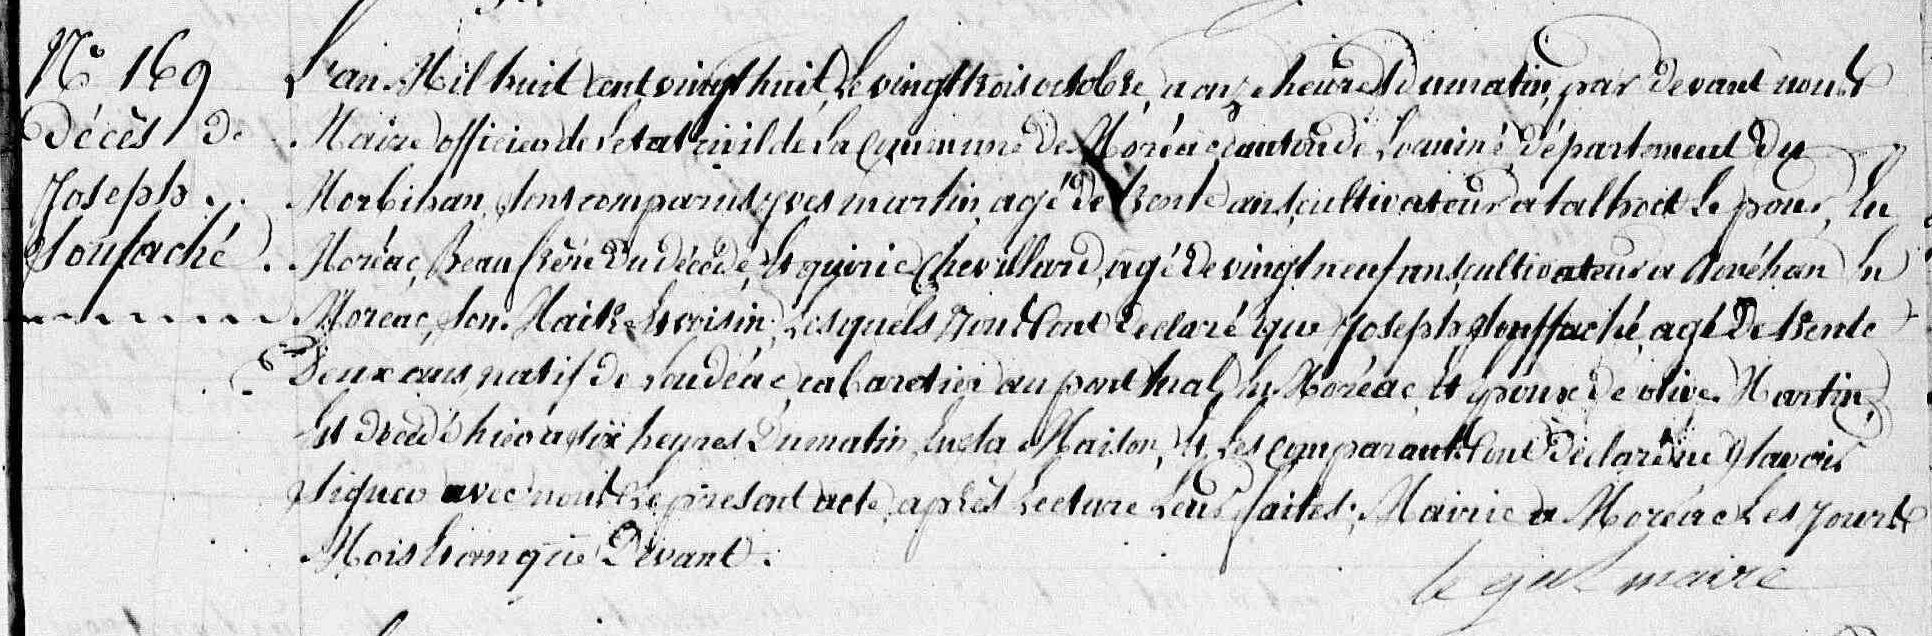 N° 169
Décès de
Joseph
Soufaché.
L'an Mil huit cent vingt huit, le vingt trois octobre, a onze heures du matin, par devant nous
Maire officier de l'etat civil de la Commune de Moréac, canton de Locminé, département du
Morbihan, sont comparus yves martin, agé de trente ans, cultivateur a talhoet le pour, En
Moréac, Beau frère du décédé, Et quiric Chevillard, agé de vingt neuf ans, cultivateur a En
Moréac, son Maitre Et voisin, Lesquels Nous ont declaré que Joseph Souffaché, agé De trente
Deux ans, natif de Loudéac, cabaretier au pont hual, En Moréac, Et Epoux de olive Martin,
Est décédé hier a six heures Du matin, En sa Maison, Et Les comparants ont Déclaré ne Savoir
signer avec nous Le présent acte, après Lecture Leur faites; Mairie a Moréac Les Jours
Mois Et an que Devant.
maire